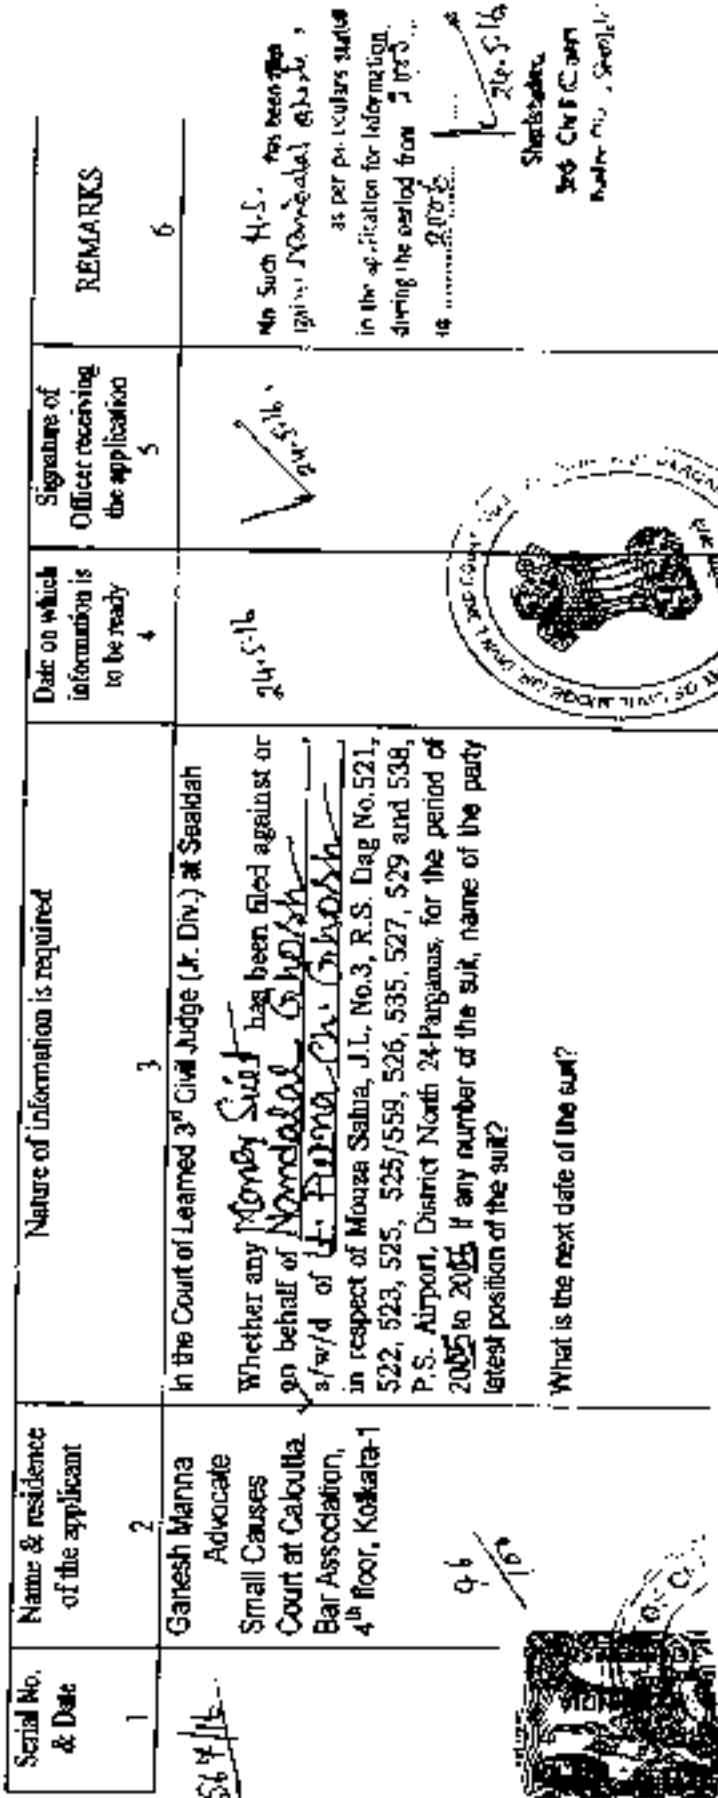 Serial No.
& Date
1
Name & residence
of the applicant
2
Nature of information is required
3
Date on which
information is
to be ready
4
Signature of
Officer receiving
the application
5
REMARKS
6
564/16
Ganesh Manna
Advocate
Small Causes
Court at Calcutta
Bar Association,
4th floor, Kolkata-1
In the Court of Learned 3rd Civil Judge (Jr. Div.) at Sealdah
Whether any Money Suit has been filed against or
on behalf of Nandalal Ghosh
s/w/d of Lt. Ch. Ghosh
in respect of Mouza Salua, J.L. No.3, R.S. Dag No.521,
522, 523, 525, 525/559, 526, 535, 527, 529 and 538,
P.S. Airport, District North 24-Parganas, for the period of
to if any number of the suit, name of the party
latest position of the suit?
What is the next date of the suit?
24.5.16
24.5.16
No Such M.S. has been filed
against Nandalal Ghosh,
as per particulars stated
in the application for information
during the period from
to
24.5.16
Sheristadar,
3rd Civil Court